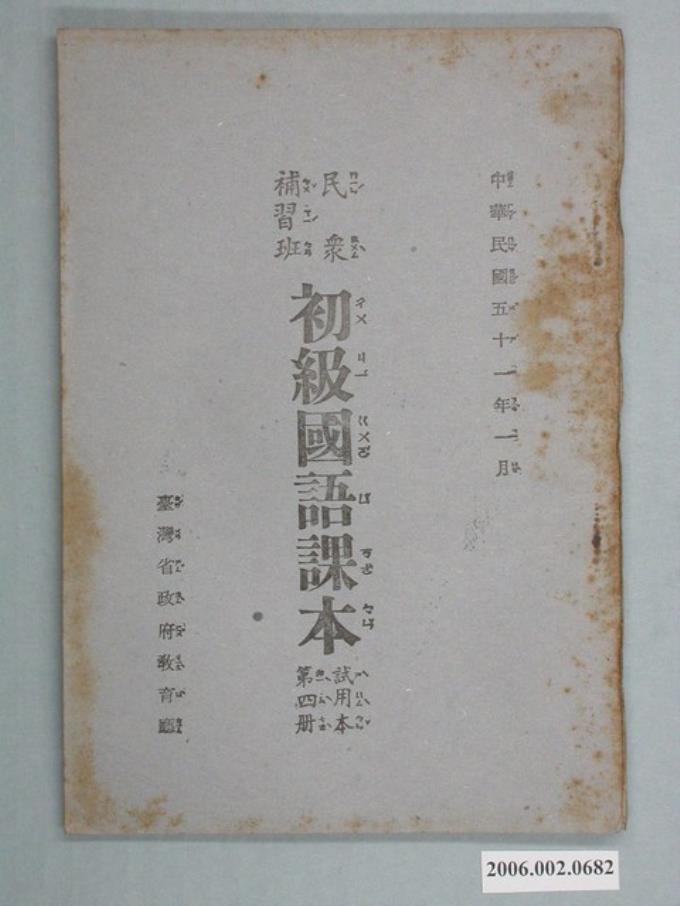 中華民國五十一年一月
民衆
補習班
初級國語課本
試用本
第四册
臺灣省政府教育廳
2006.002.0682